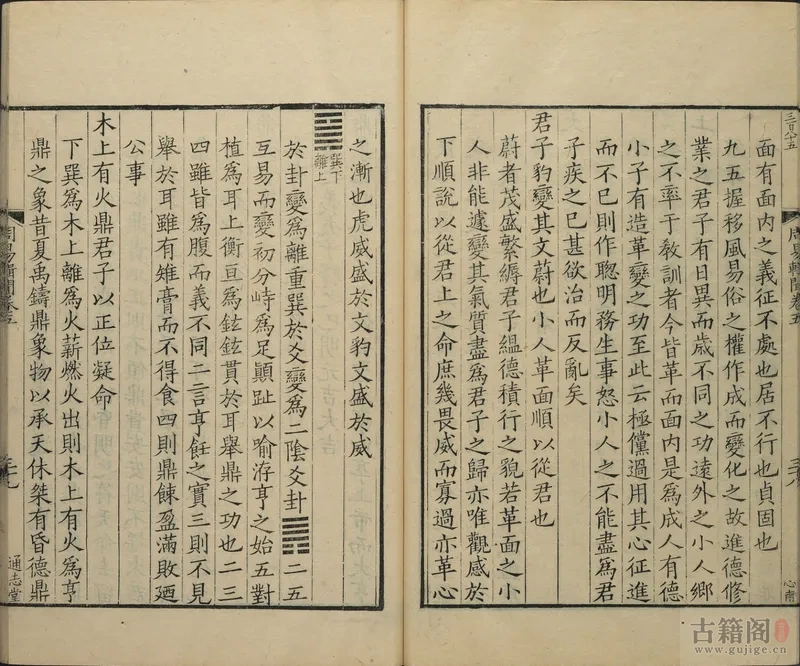 三百八十五
周易輯聞卷五
三十八
心甫
面有面內之義征不處也居不行也貞固也
九五握移風易俗之權作成而變化之故進德修
業之君子有日異而歲不同之功遠外之小人鄉
之不率于教訓者今皆革而面內是為成人有德
小子有造革變之功至此云極儻過用其心征進
而不已則作聰明務生事怒小人之不能盡為君
子疾之已甚欲治而反亂矣
君子豹變其文蔚也小人革面順以從君也
蔚者茂盛繁縟君子縕德積行之貌若革面之小
人非能遽變其氣質盡為君子之歸亦唯觀感於
下順說以從君上之命庶幾畏威而寡過亦革心
之漸也虎威盛於文豹文盛於威
䷱巽下離上
於卦變為離重巽於爻變為二陰爻卦䷠二五
互易而變初分峙為足顚趾以喻洊亨之始五對
植為耳上衡亘為鉉鉉貫於耳舉鼎之功也二三
四雖皆為腹而義不同二言亨飪之實三則不見
舉於耳雖有雉膏而不得食四則鼎餗盈滿敗廼
公事
木上有火鼎君子以正位凝命
下巽為木上離為火薪燃火出則木上有火為亨
鼎之象昔夏禹鑄鼎象物以承天休桀有昏德鼎
周易輯聞卷五
三十九
通志堂
古籍阁
www.gujige.cn